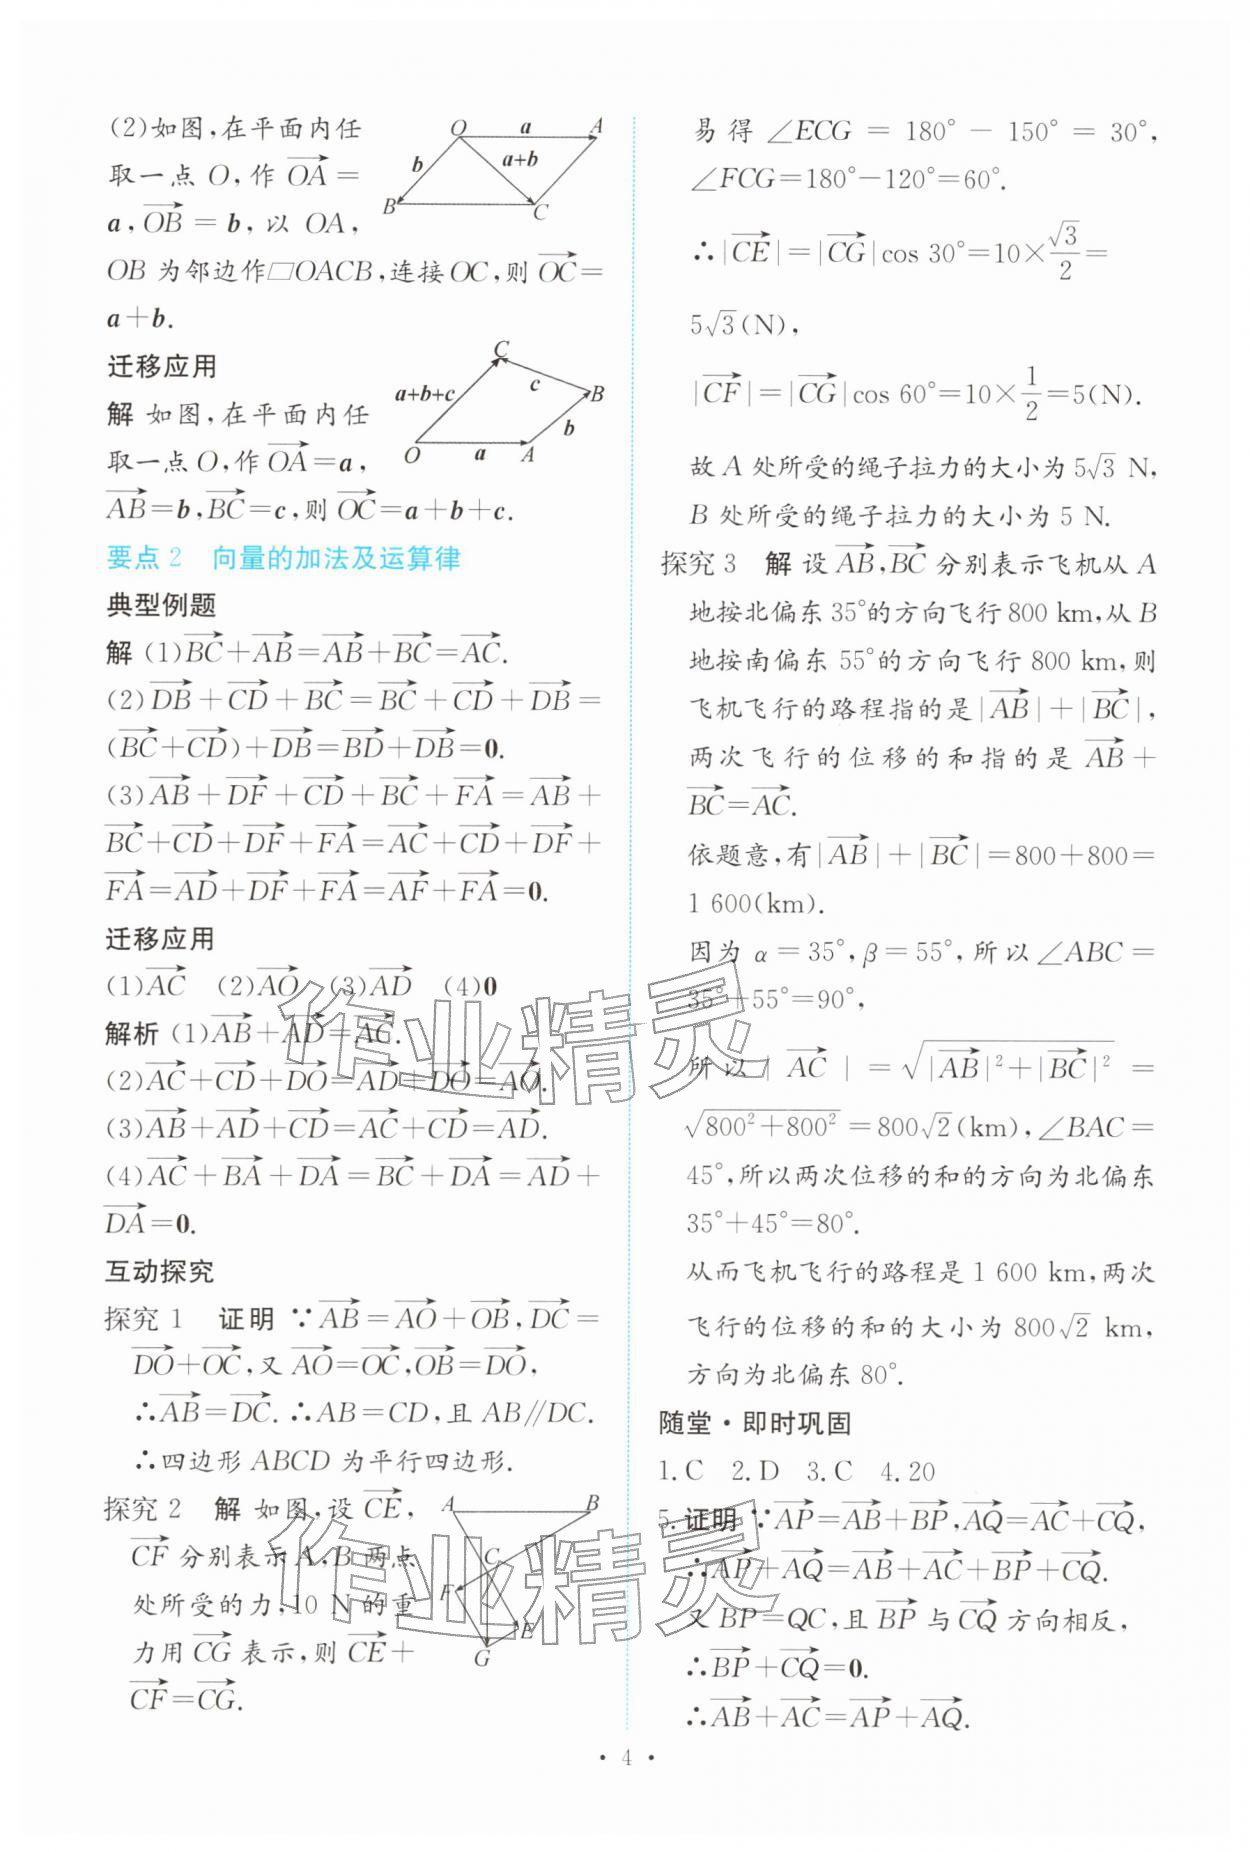 (2)如图,在平面内任
取一点 O,作 $\overrightarrow{OA}$ =
a,$\overrightarrow{OB}$ = b,以 OA,
OB 为邻边作□OACB,连接OC,则 $\overrightarrow{OC}$=
a+b.
O a A
b a+b
B C
迁移应用
解 如图,在平面内任
取一点O,作 $\overrightarrow{OA}$=a,
$\overrightarrow{AB}$=b,$\overrightarrow{BC}$=c,则 $\overrightarrow{OC}$=a+b+c.
C
a+b+c c B
b
O a A
要点 2 向量的加法及运算律
典型例题
解 (1)$\overrightarrow{BC}$+$\overrightarrow{AB}$=$\overrightarrow{AB}$+$\overrightarrow{BC}$=$\overrightarrow{AC}$.
(2)$\overrightarrow{DB}$+$\overrightarrow{CD}$+$\overrightarrow{BC}$=$\overrightarrow{BC}$+$\overrightarrow{CD}$+$\overrightarrow{DB}$=
($\overrightarrow{BC}$+$\overrightarrow{CD}$)+$\overrightarrow{DB}$=$\overrightarrow{BD}$+$\overrightarrow{DB}$=0.
(3)$\overrightarrow{AB}$+$\overrightarrow{DF}$+$\overrightarrow{CD}$+$\overrightarrow{BC}$+$\overrightarrow{FA}$=$\overrightarrow{AB}$+
$\overrightarrow{BC}$+$\overrightarrow{CD}$+$\overrightarrow{DF}$+$\overrightarrow{FA}$=$\overrightarrow{AC}$+$\overrightarrow{CD}$+$\overrightarrow{DF}$+
$\overrightarrow{FA}$=$\overrightarrow{AD}$+$\overrightarrow{DF}$+$\overrightarrow{FA}$=$\overrightarrow{AF}$+$\overrightarrow{FA}$=0.
迁移应用
(1)$\overrightarrow{AC}$ (2)$\overrightarrow{AO}$ (3)$\overrightarrow{AD}$ (4)0
解析 (1)$\overrightarrow{AB}$+$\overrightarrow{AD}$=$\overrightarrow{AC}$.
(2)$\overrightarrow{AC}$+$\overrightarrow{CD}$+$\overrightarrow{DO}$=$\overrightarrow{AD}$+$\overrightarrow{DO}$=$\overrightarrow{AO}$.
(3)$\overrightarrow{AB}$+$\overrightarrow{AD}$+$\overrightarrow{CD}$=$\overrightarrow{AC}$+$\overrightarrow{CD}$=$\overrightarrow{AD}$.
(4)$\overrightarrow{AC}$+$\overrightarrow{BA}$+$\overrightarrow{DA}$=$\overrightarrow{BC}$+$\overrightarrow{DA}$=$\overrightarrow{AD}$+
$\overrightarrow{DA}$=0.
互动探究
探究 1 证明 ∵$\overrightarrow{AB}$=$\overrightarrow{AO}$+$\overrightarrow{OB}$,$\overrightarrow{DC}$=
$\overrightarrow{DO}$+$\overrightarrow{OC}$,又 $\overrightarrow{AO}$=$\overrightarrow{OC}$,$\overrightarrow{OB}$=$\overrightarrow{DO}$,
∴$\overrightarrow{AB}$=$\overrightarrow{DC}$.∴AB=CD,且 AB∥DC.
∴四边形 ABCD 为平行四边形.
探究 2 解 如图,设 $\overrightarrow{CE}$,
$\overrightarrow{CF}$ 分别表示A,B 两点
处所受的力,10 N 的重
力用 $\overrightarrow{CG}$ 表示,则 $\overrightarrow{CE}$+
$\overrightarrow{CF}$=$\overrightarrow{CG}$.
A B
C
F
E
G
易得 ∠ECG = 180° − 150° = 30°,
∠FCG=180°−120°=60°.
∴|$\overrightarrow{CE}$|=|$\overrightarrow{CG}$|cos 30°=10×$\frac{\sqrt{3}}{2}$=
5$\sqrt{3}$(N),
|$\overrightarrow{CF}$|=|$\overrightarrow{CG}$|cos 60°=10×$\frac{1}{2}$=5(N).
故 A 处所受的绳子拉力的大小为 5$\sqrt{3}$ N,
B 处所受的绳子拉力的大小为 5 N.
探究 3 解 设 $\overrightarrow{AB}$,$\overrightarrow{BC}$ 分别表示飞机从 A
地按北偏东 35°的方向飞行 800 km,从 B
地按南偏东 55°的方向飞行 800 km,则
飞机飞行的路程指的是|$\overrightarrow{AB}$|+|$\overrightarrow{BC}$|,
两次飞行的位移的和指的是 $\overrightarrow{AB}$+
$\overrightarrow{BC}$=$\overrightarrow{AC}$.
依题意,有|$\overrightarrow{AB}$|+|$\overrightarrow{BC}$|=800+800=
1 600(km).
因为 α=35°,β=55°,所以∠ABC=
35°+55°=90°,
所以|$\overrightarrow{AC}$|=$\sqrt{|\overrightarrow{AB}|^2+|\overrightarrow{BC}|^2}$=
$\sqrt{800^2+800^2}$=800$\sqrt{2}$(km),∠BAC=
45°,所以两次位移的和的方向为北偏东
35°+45°=80°.
从而飞机飞行的路程是 1 600 km,两次
飞行的位移的和的大小为 800$\sqrt{2}$ km,
方向为北偏东 80°.
随堂·即时巩固
1.C 2.D 3.C 4.20
5.证明 ∵$\overrightarrow{AP}$=$\overrightarrow{AB}$+$\overrightarrow{BP}$,$\overrightarrow{AQ}$=$\overrightarrow{AC}$+$\overrightarrow{CQ}$,
∴$\overrightarrow{AP}$+$\overrightarrow{AQ}$=$\overrightarrow{AB}$+$\overrightarrow{AC}$+$\overrightarrow{BP}$+$\overrightarrow{CQ}$.
又 BP=QC,且 $\overrightarrow{BP}$ 与 $\overrightarrow{CQ}$ 方向相反,
∴$\overrightarrow{BP}$+$\overrightarrow{CQ}$=0.
∴$\overrightarrow{AB}$+$\overrightarrow{AC}$=$\overrightarrow{AP}$+$\overrightarrow{AQ}$.
作业精灵
作业精灵
· 4 ·